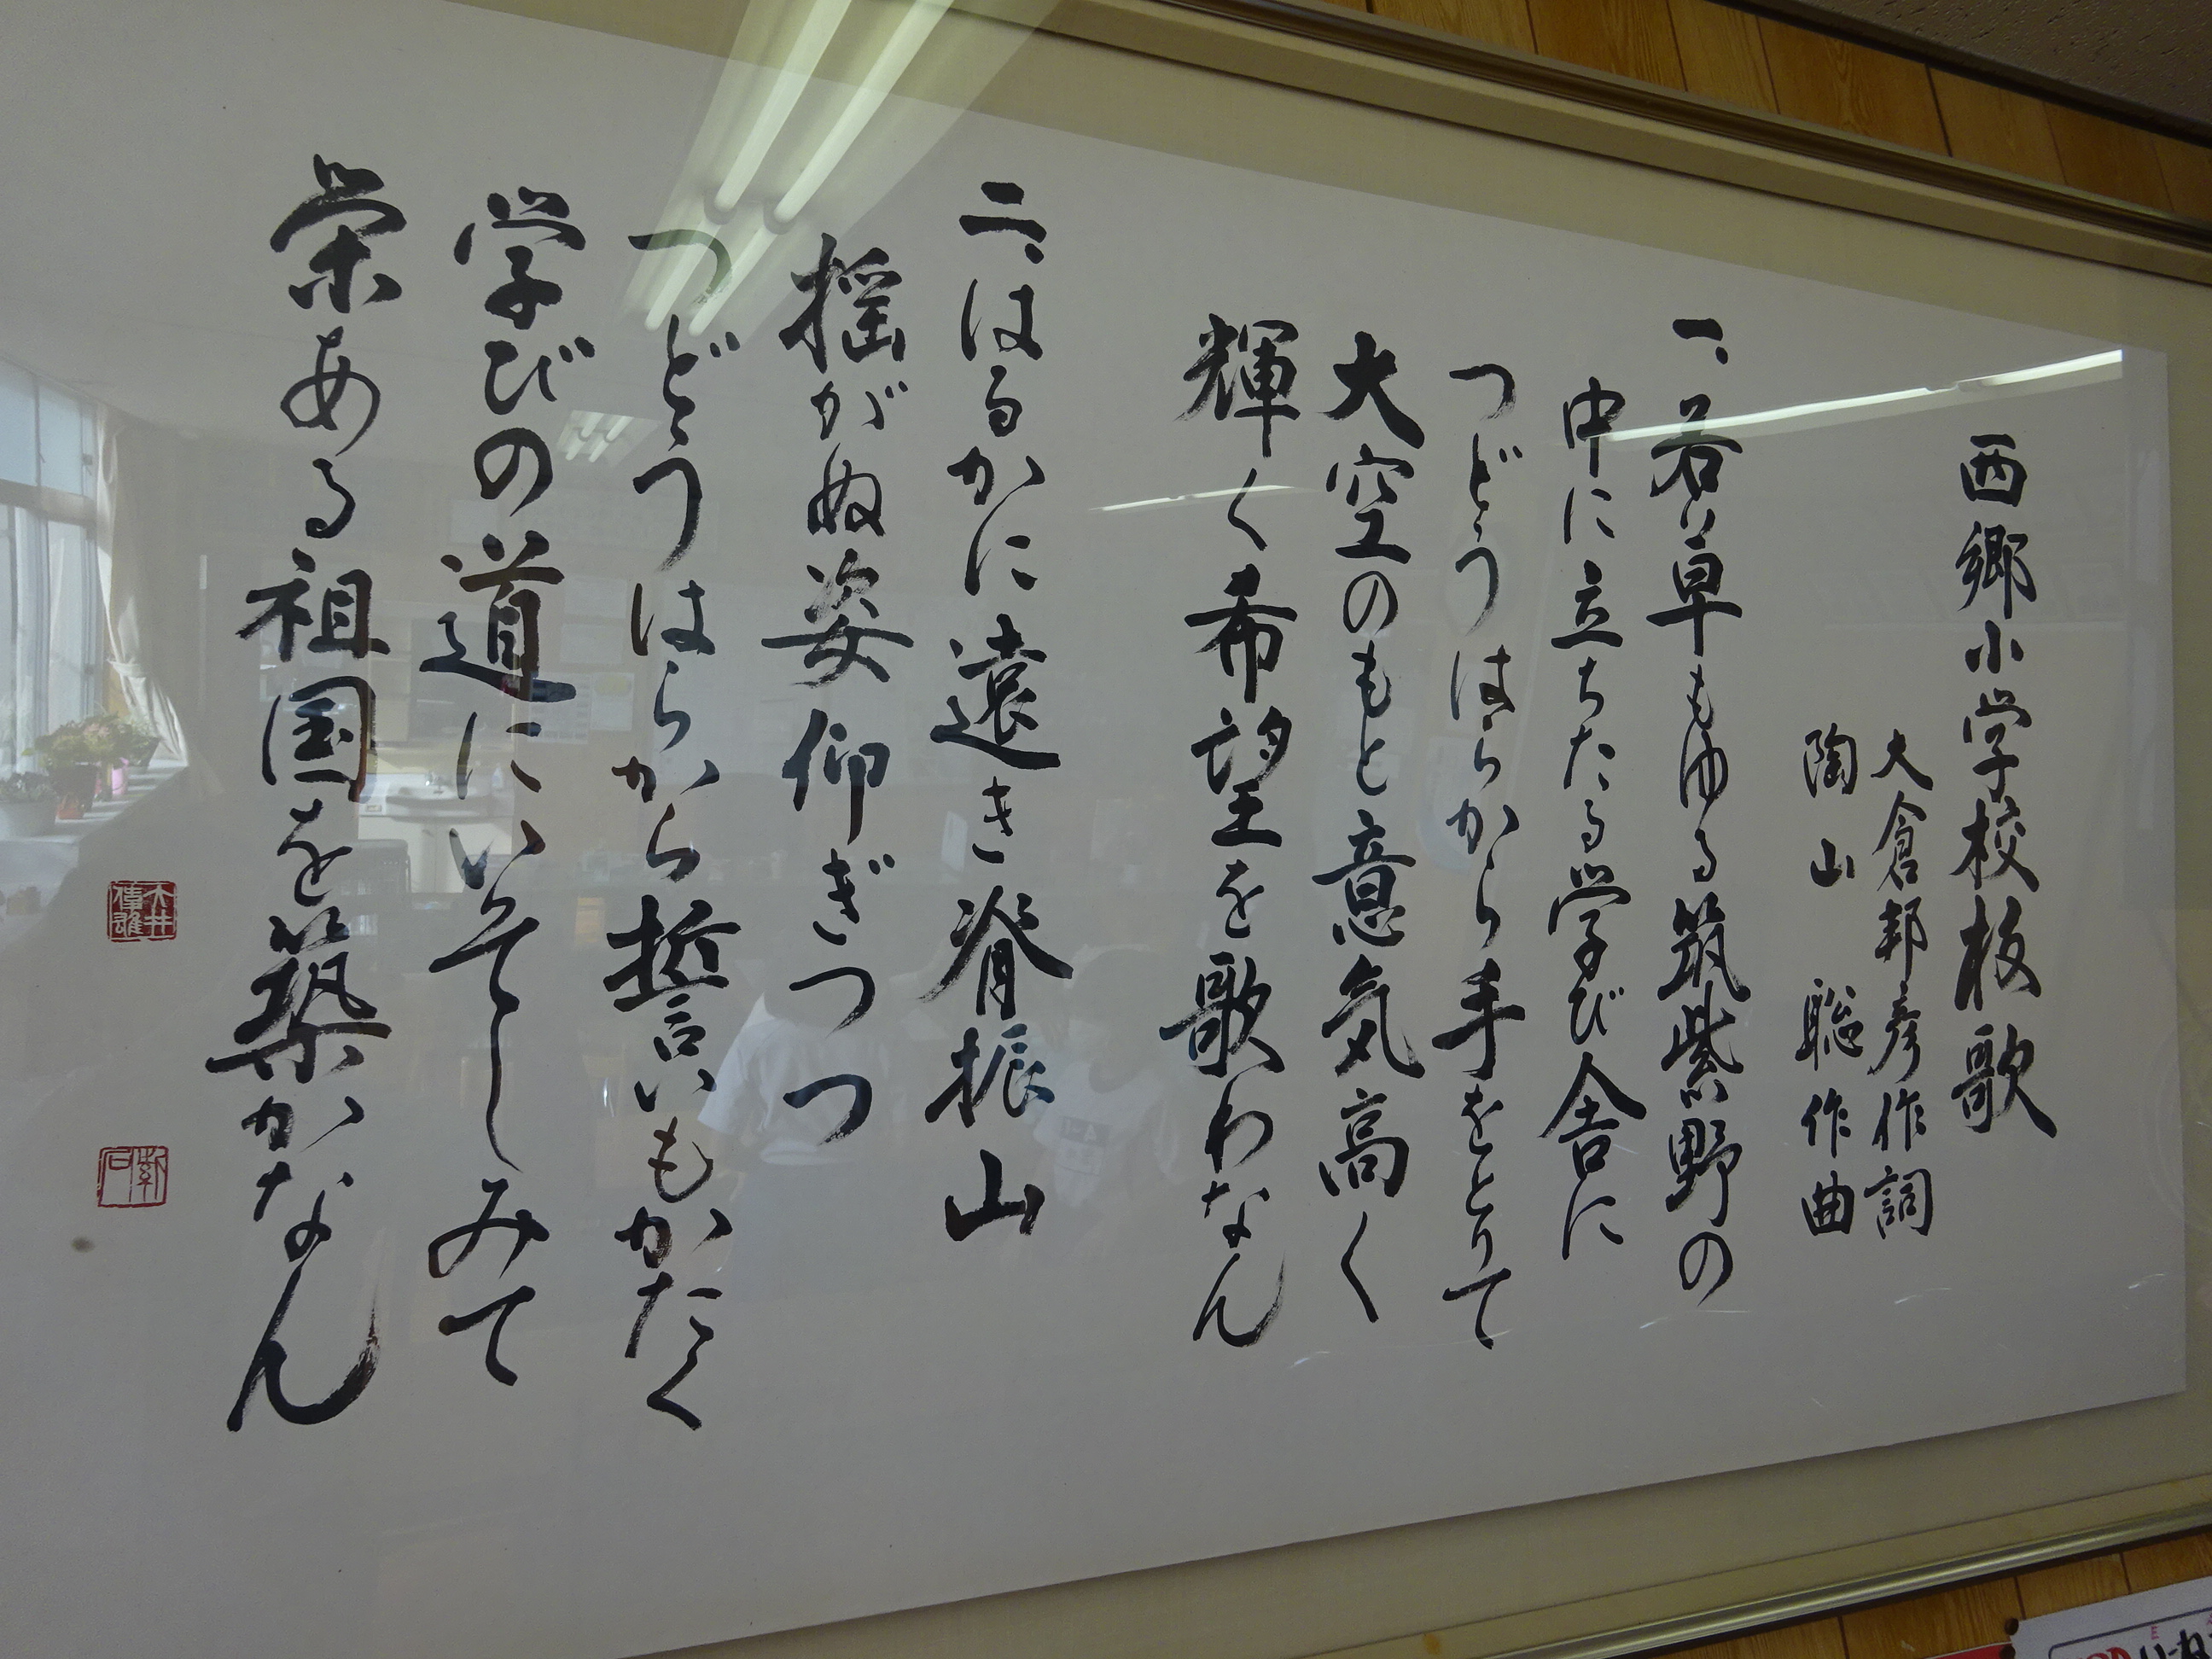 西郷小学校校歌
大倉邦彦作詞
陶山 聡作曲
一、若草もゆる筑紫野の
中に立ちたる学び舎に
つどうはらから手をとりて
大空のもと意気高く
輝く希望を歌わなん
二、はるかに遠き脊振山
揺がぬ姿仰ぎつつ
つどうはらから誓いもかたく
学びの道にいそしみて
栄ある祖国を築かなん